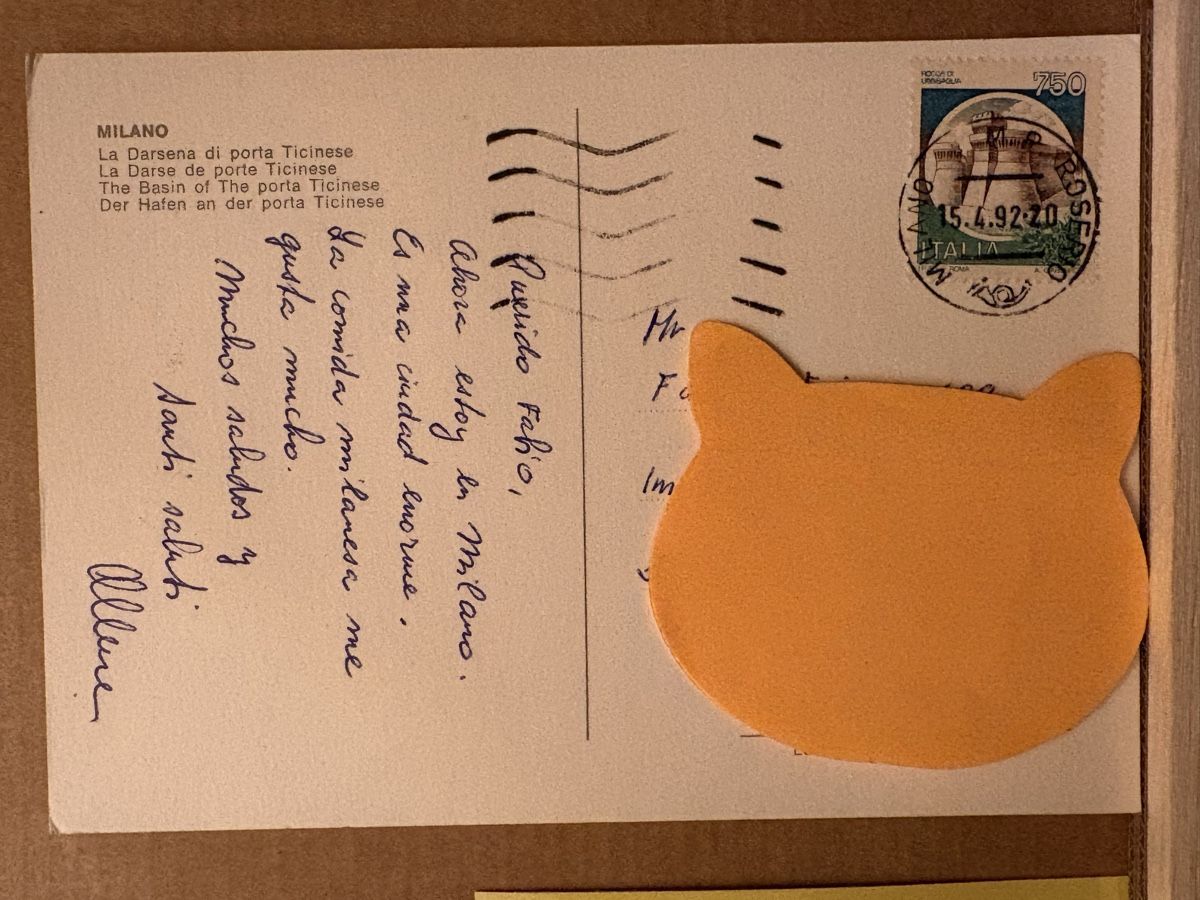 MILANO
La Darsena di porta Ticinese
La Darse de porte Ticinese
The Basin of The porta Ticinese
Der Hafen an der porta Ticinese
Querido Fabio,
Ahora estoy en Milano.
Es una ciudad enorme.
La comida milanesa me
gusta mucho.
Muchos saludos y
santi saluti
ROCCA DI
URBISAGLIA
750
ITALIA
ROMA
MILANO ROSERIO
15.4.92-20
Mr